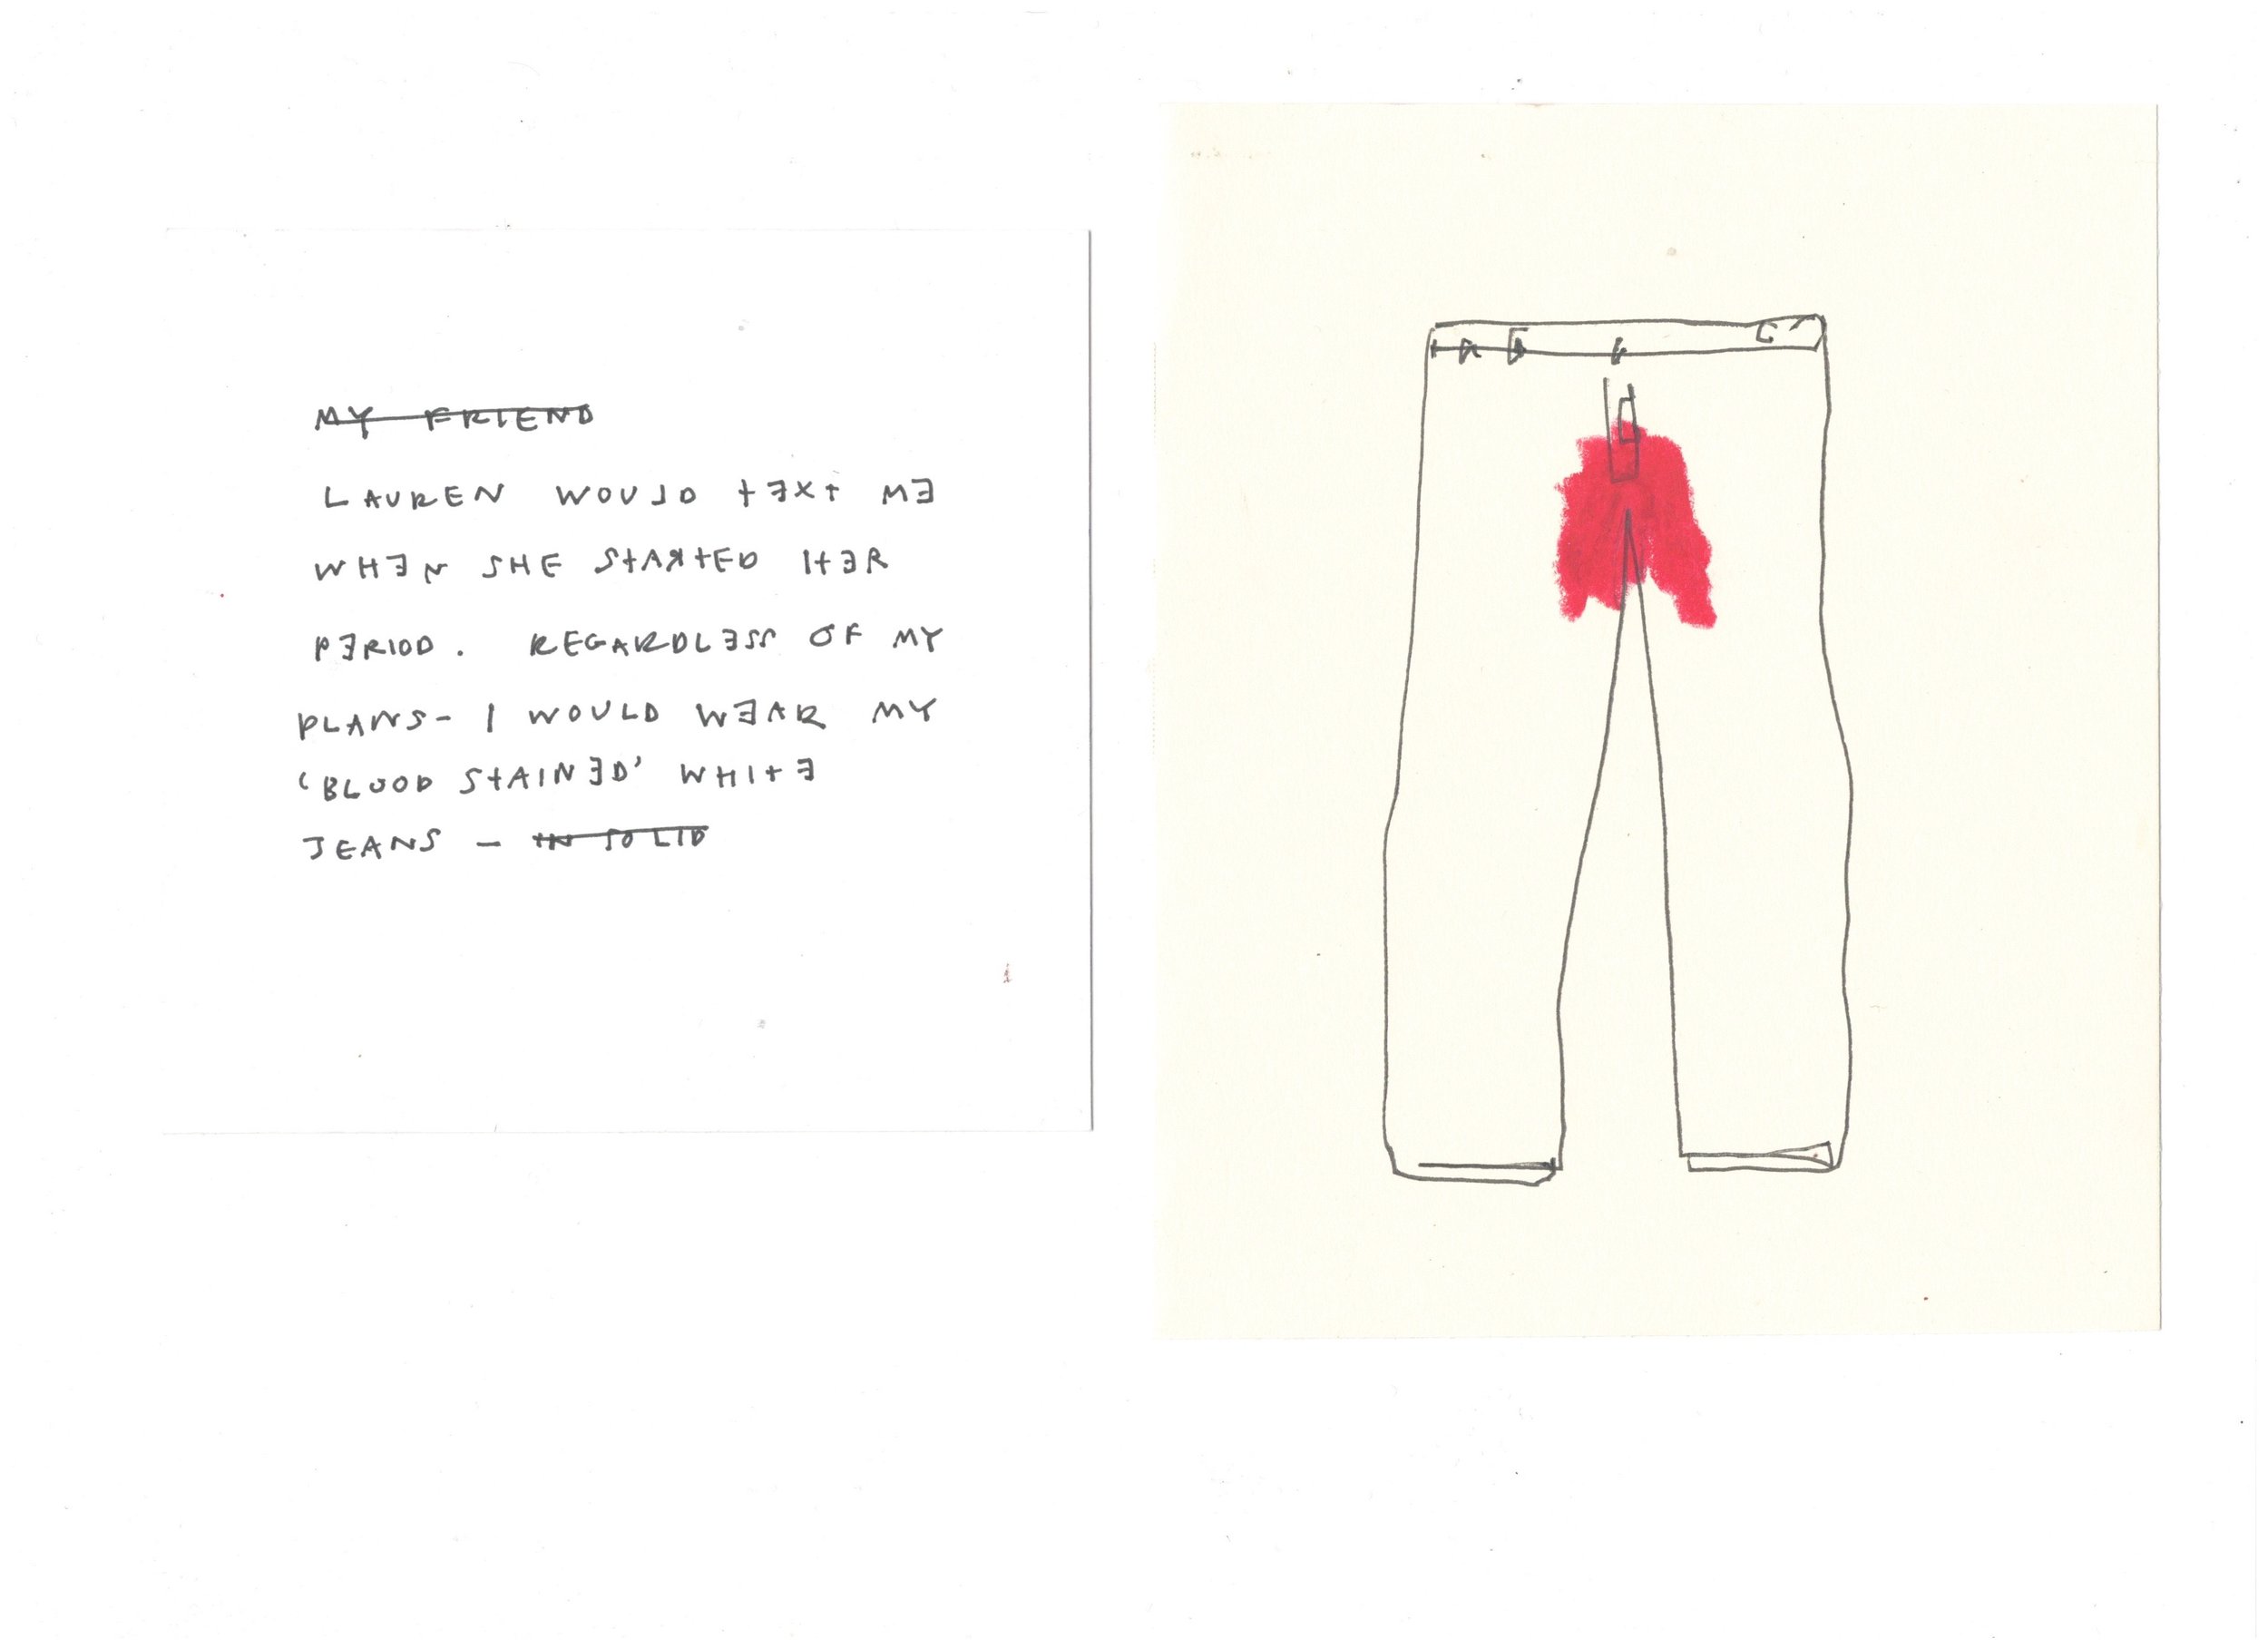 MY FRIEND
LAUREN WOULD TEXT ME
WHEN SHE STARTED HER
PERIOD. REGARDLESS OF MY
PLANS- I WOULD WEAR MY
'BLOOD STAINED' WHITE
JEANS - IN SOLID